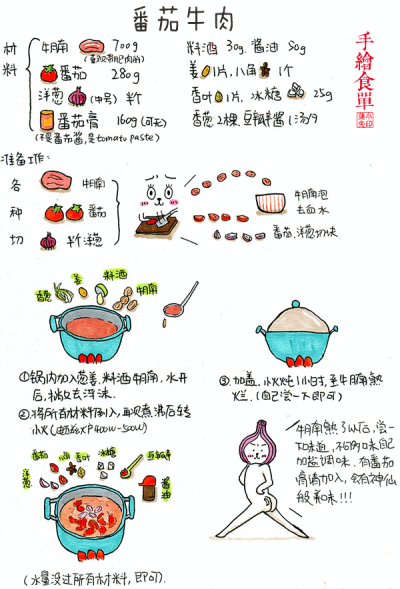 番茄牛肉
材料
牛腩 700g
(喜欢带肥肉的)
番茄 280g
洋葱 (中号) 半个
番茄膏 160g (可无)
(不是番茄酱,是tomato paste)
料酒 30g, 酱油 50g
姜 1片, 八角 1个
香叶 1片, 冰糖 25g
香葱 2棵, 豆瓣酱 1汤勺
手繪食單
准备工作:
各种切
牛腩
番茄
半个洋葱
牛腩泡
去血水
番茄、洋葱切块
香葱
姜
料酒
牛腩
①锅内加入葱姜,料酒牛腩,水开
后,捞出去浮沫.
②将所有材料倒入,再次煮沸后转
小火
番茄
冰糖
豆瓣酱
洋葱
酱油
(水量没过所有材料,即可).
③加盖,小火炖1小时,至牛腩熟
烂,(自己尝一下即可)
牛腩熟了以后,尝一
下味道,不够味自己
加盐调味.有番茄
膏请加入,会有神仙
般美味!!!